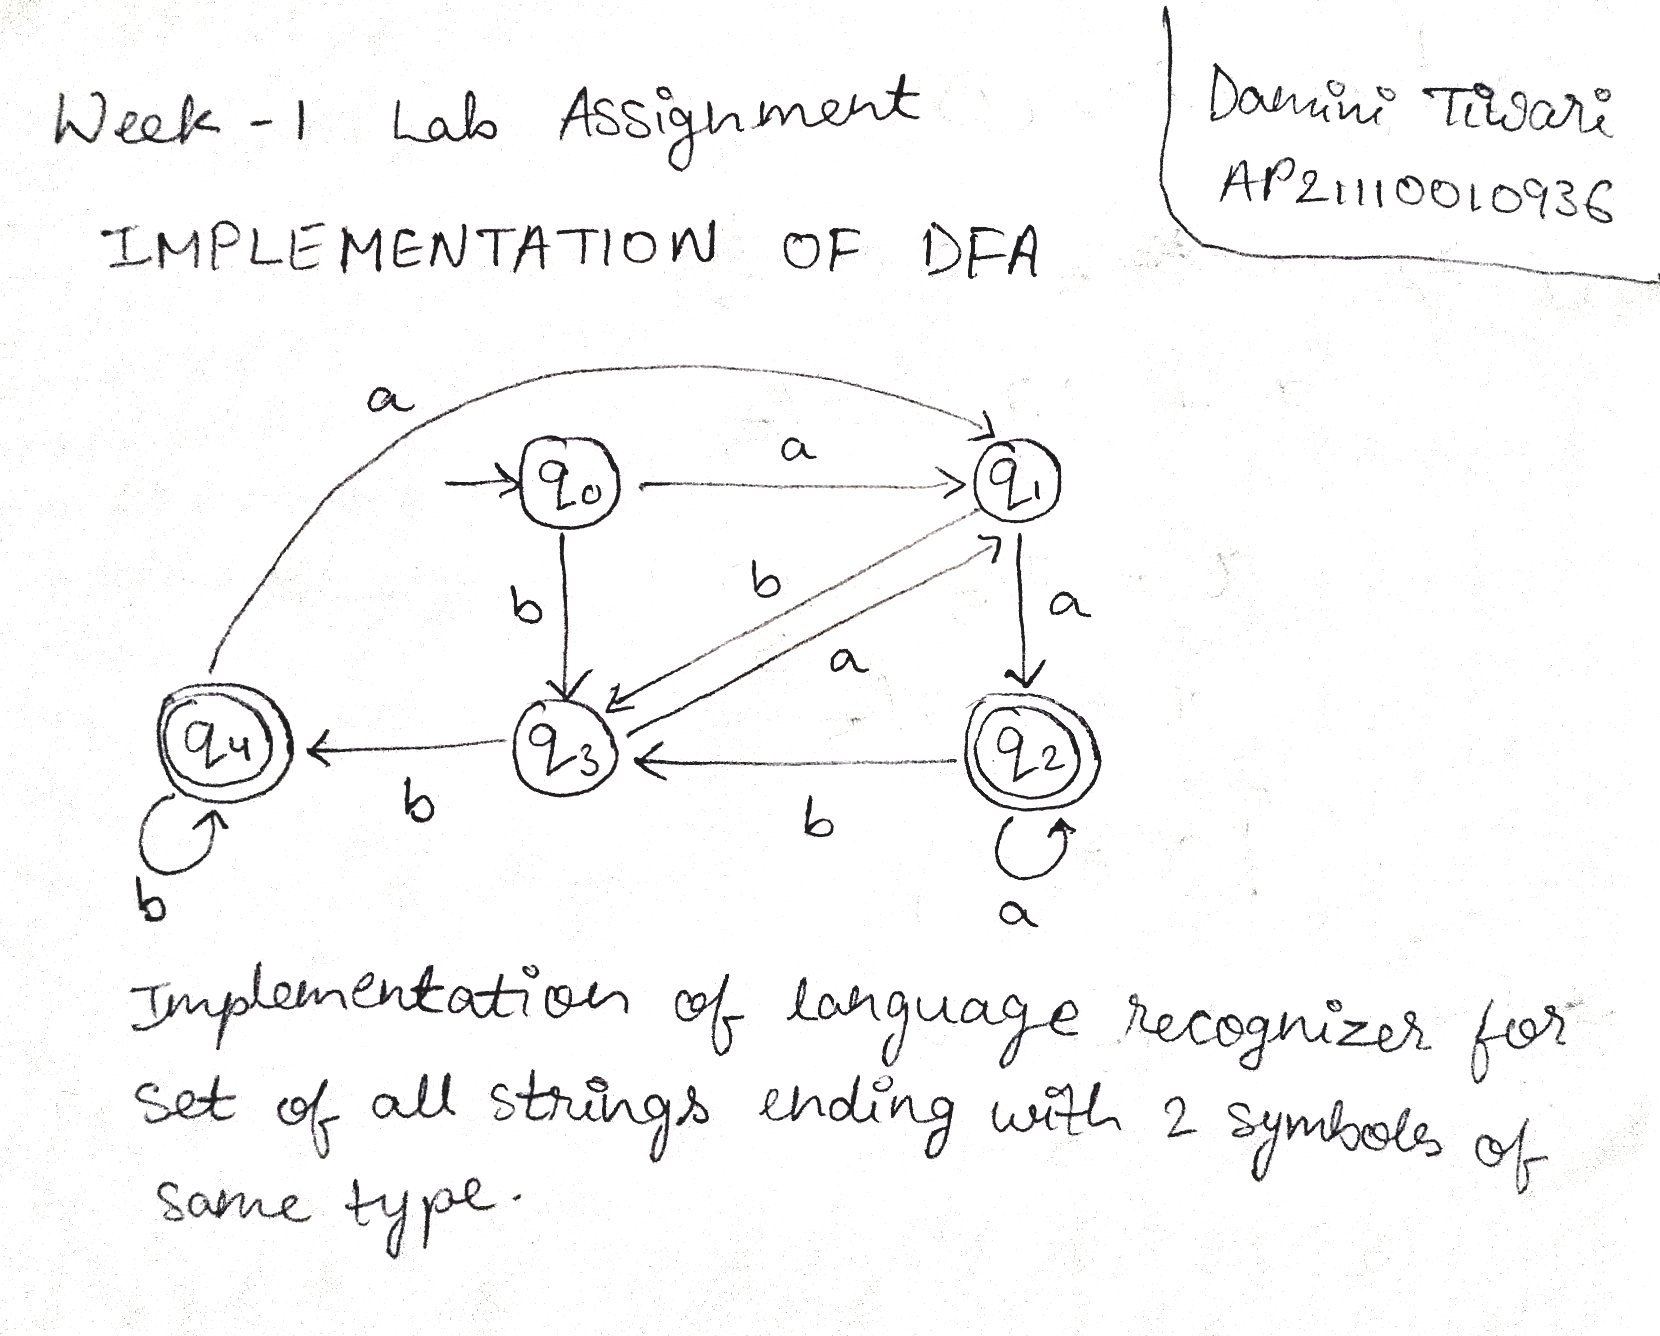 Week - 1 Lab Assignment
Damini Tiwari
AP21110010936
IMPLEMENTATION OF DFA
a
q0
a
q1
b
b
a
a
q4
b
q3
b
q2
b
a
Implementation of language recognizer for
set of all strings ending with 2 symbols of
same type.